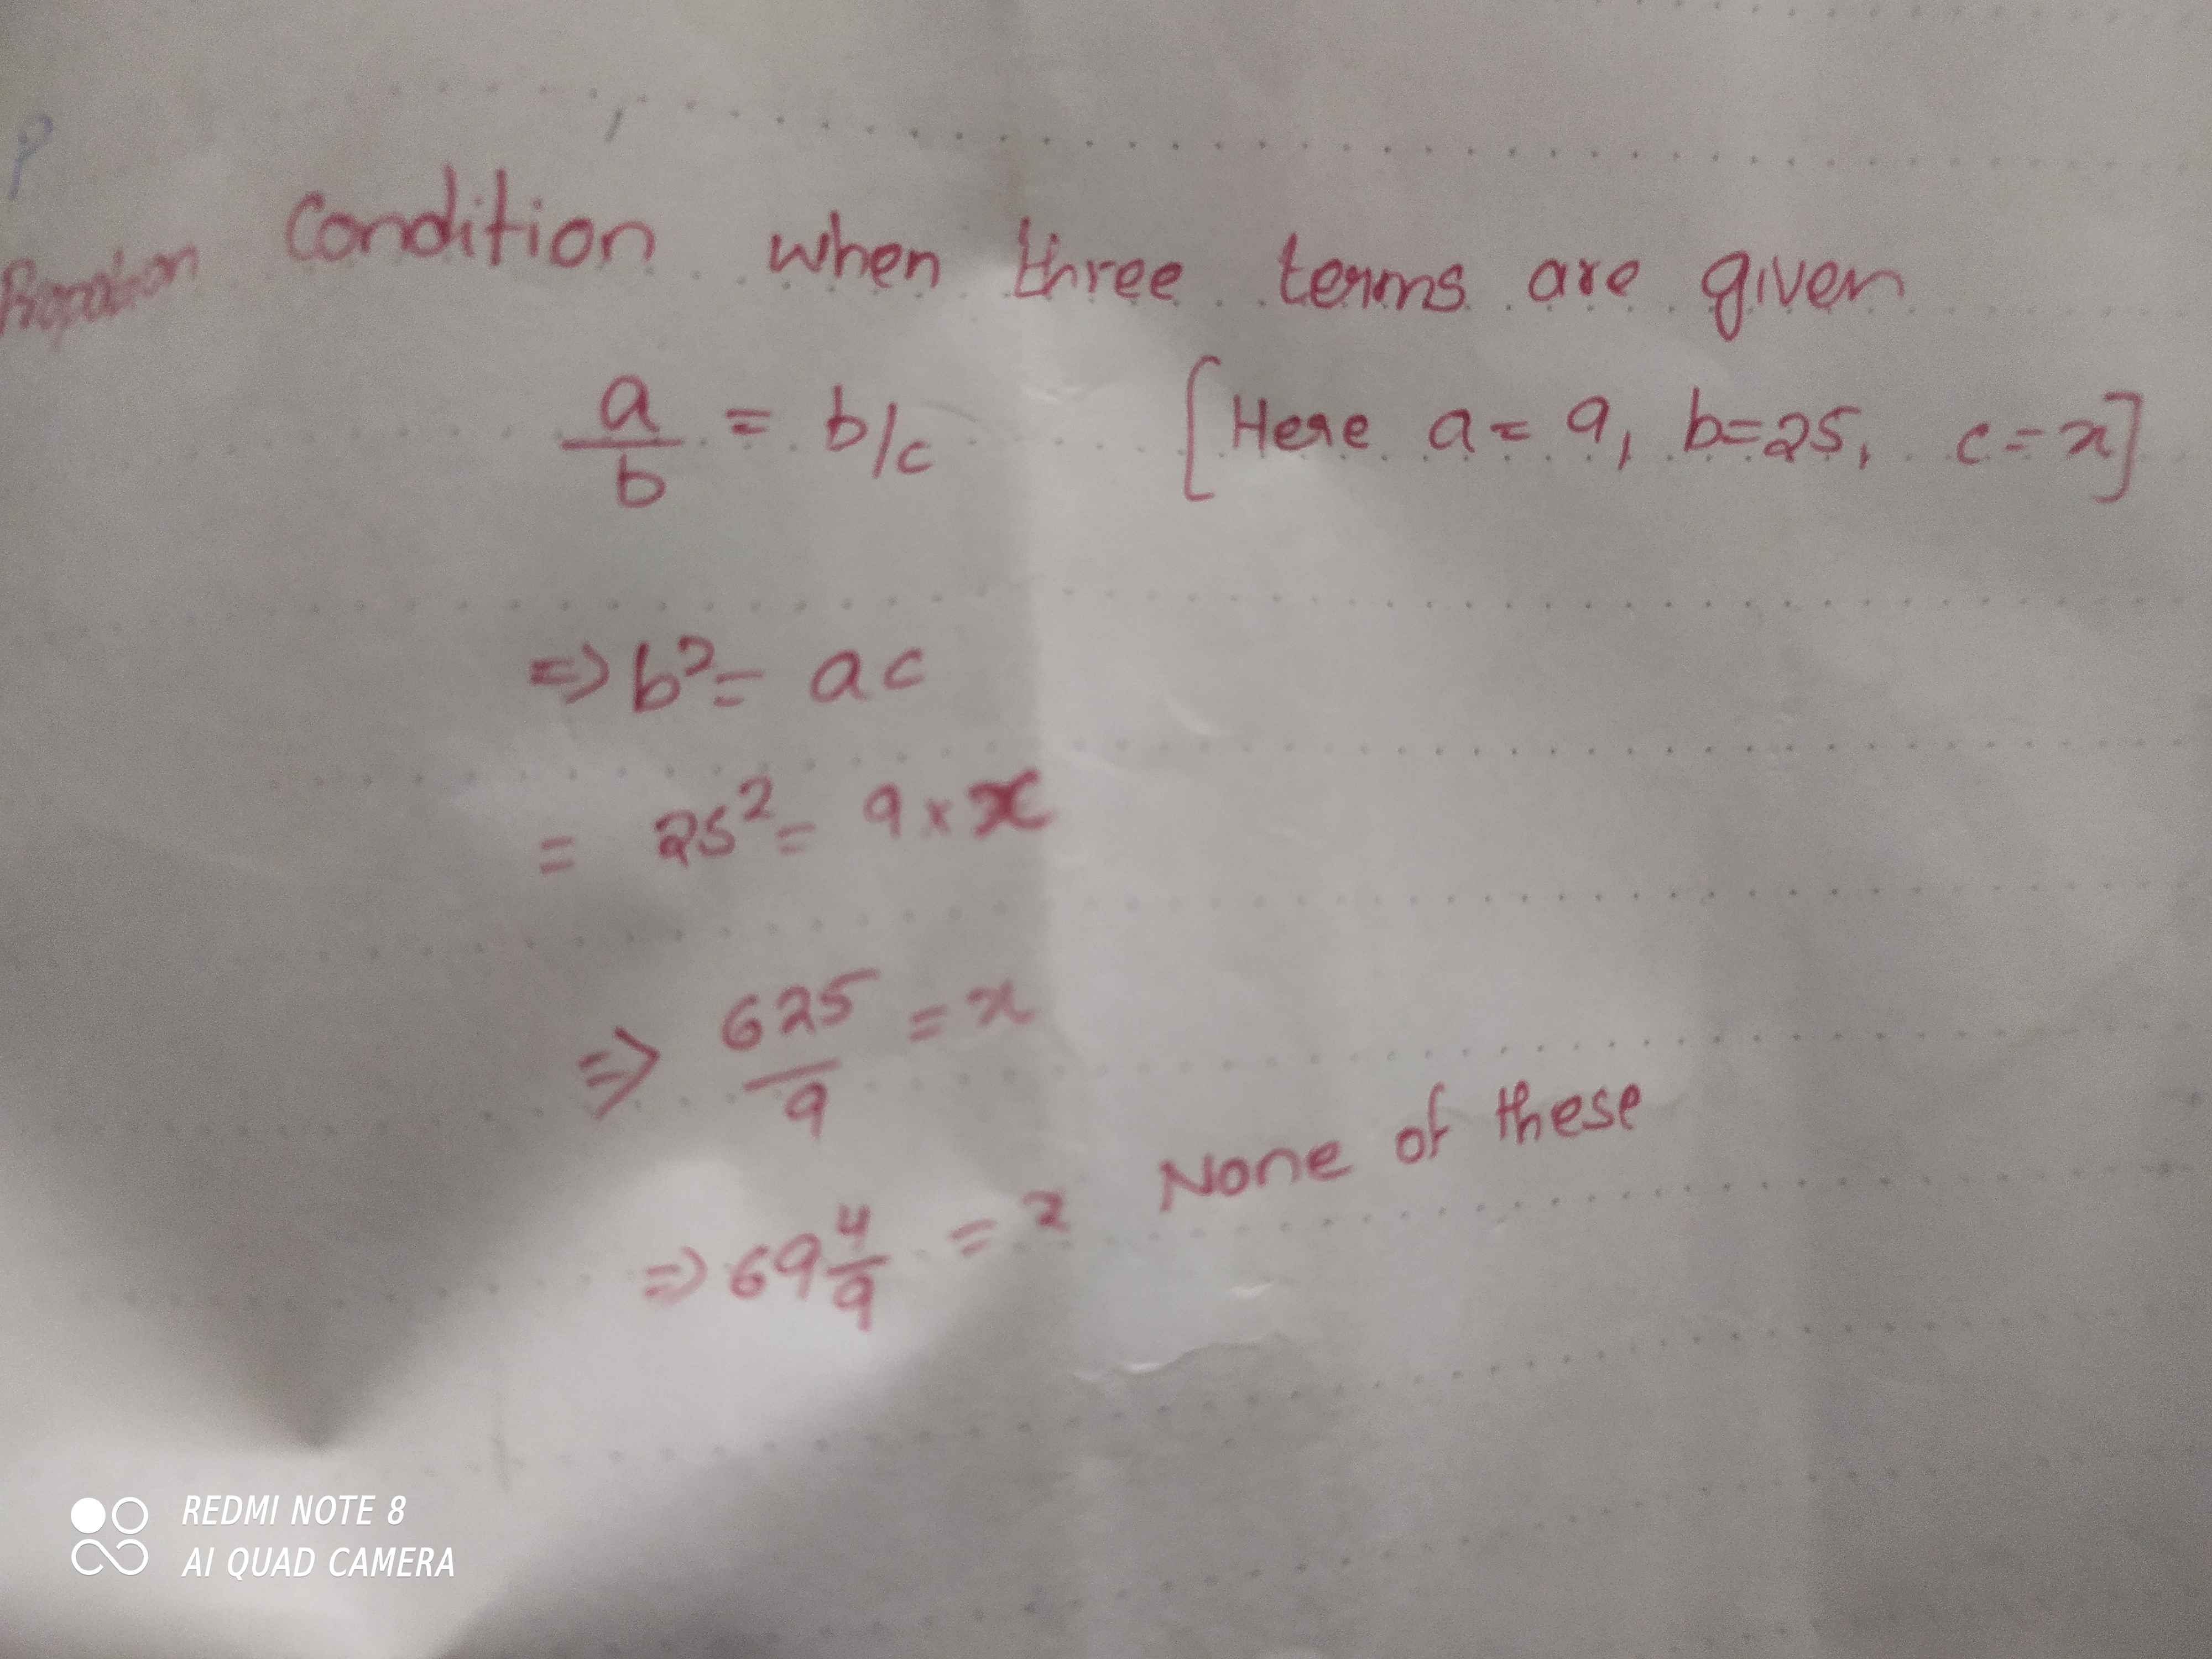 P
Proportion Condition when three terms are given
a/b = b/c [Here a = 9, b=25, c = x]
⇒ b² = ac
= 25² = 9 × x
⇒ 625/9 = x
⇒ 69 4/9 = x None of these
REDMI NOTE 8
AI QUAD CAMERA